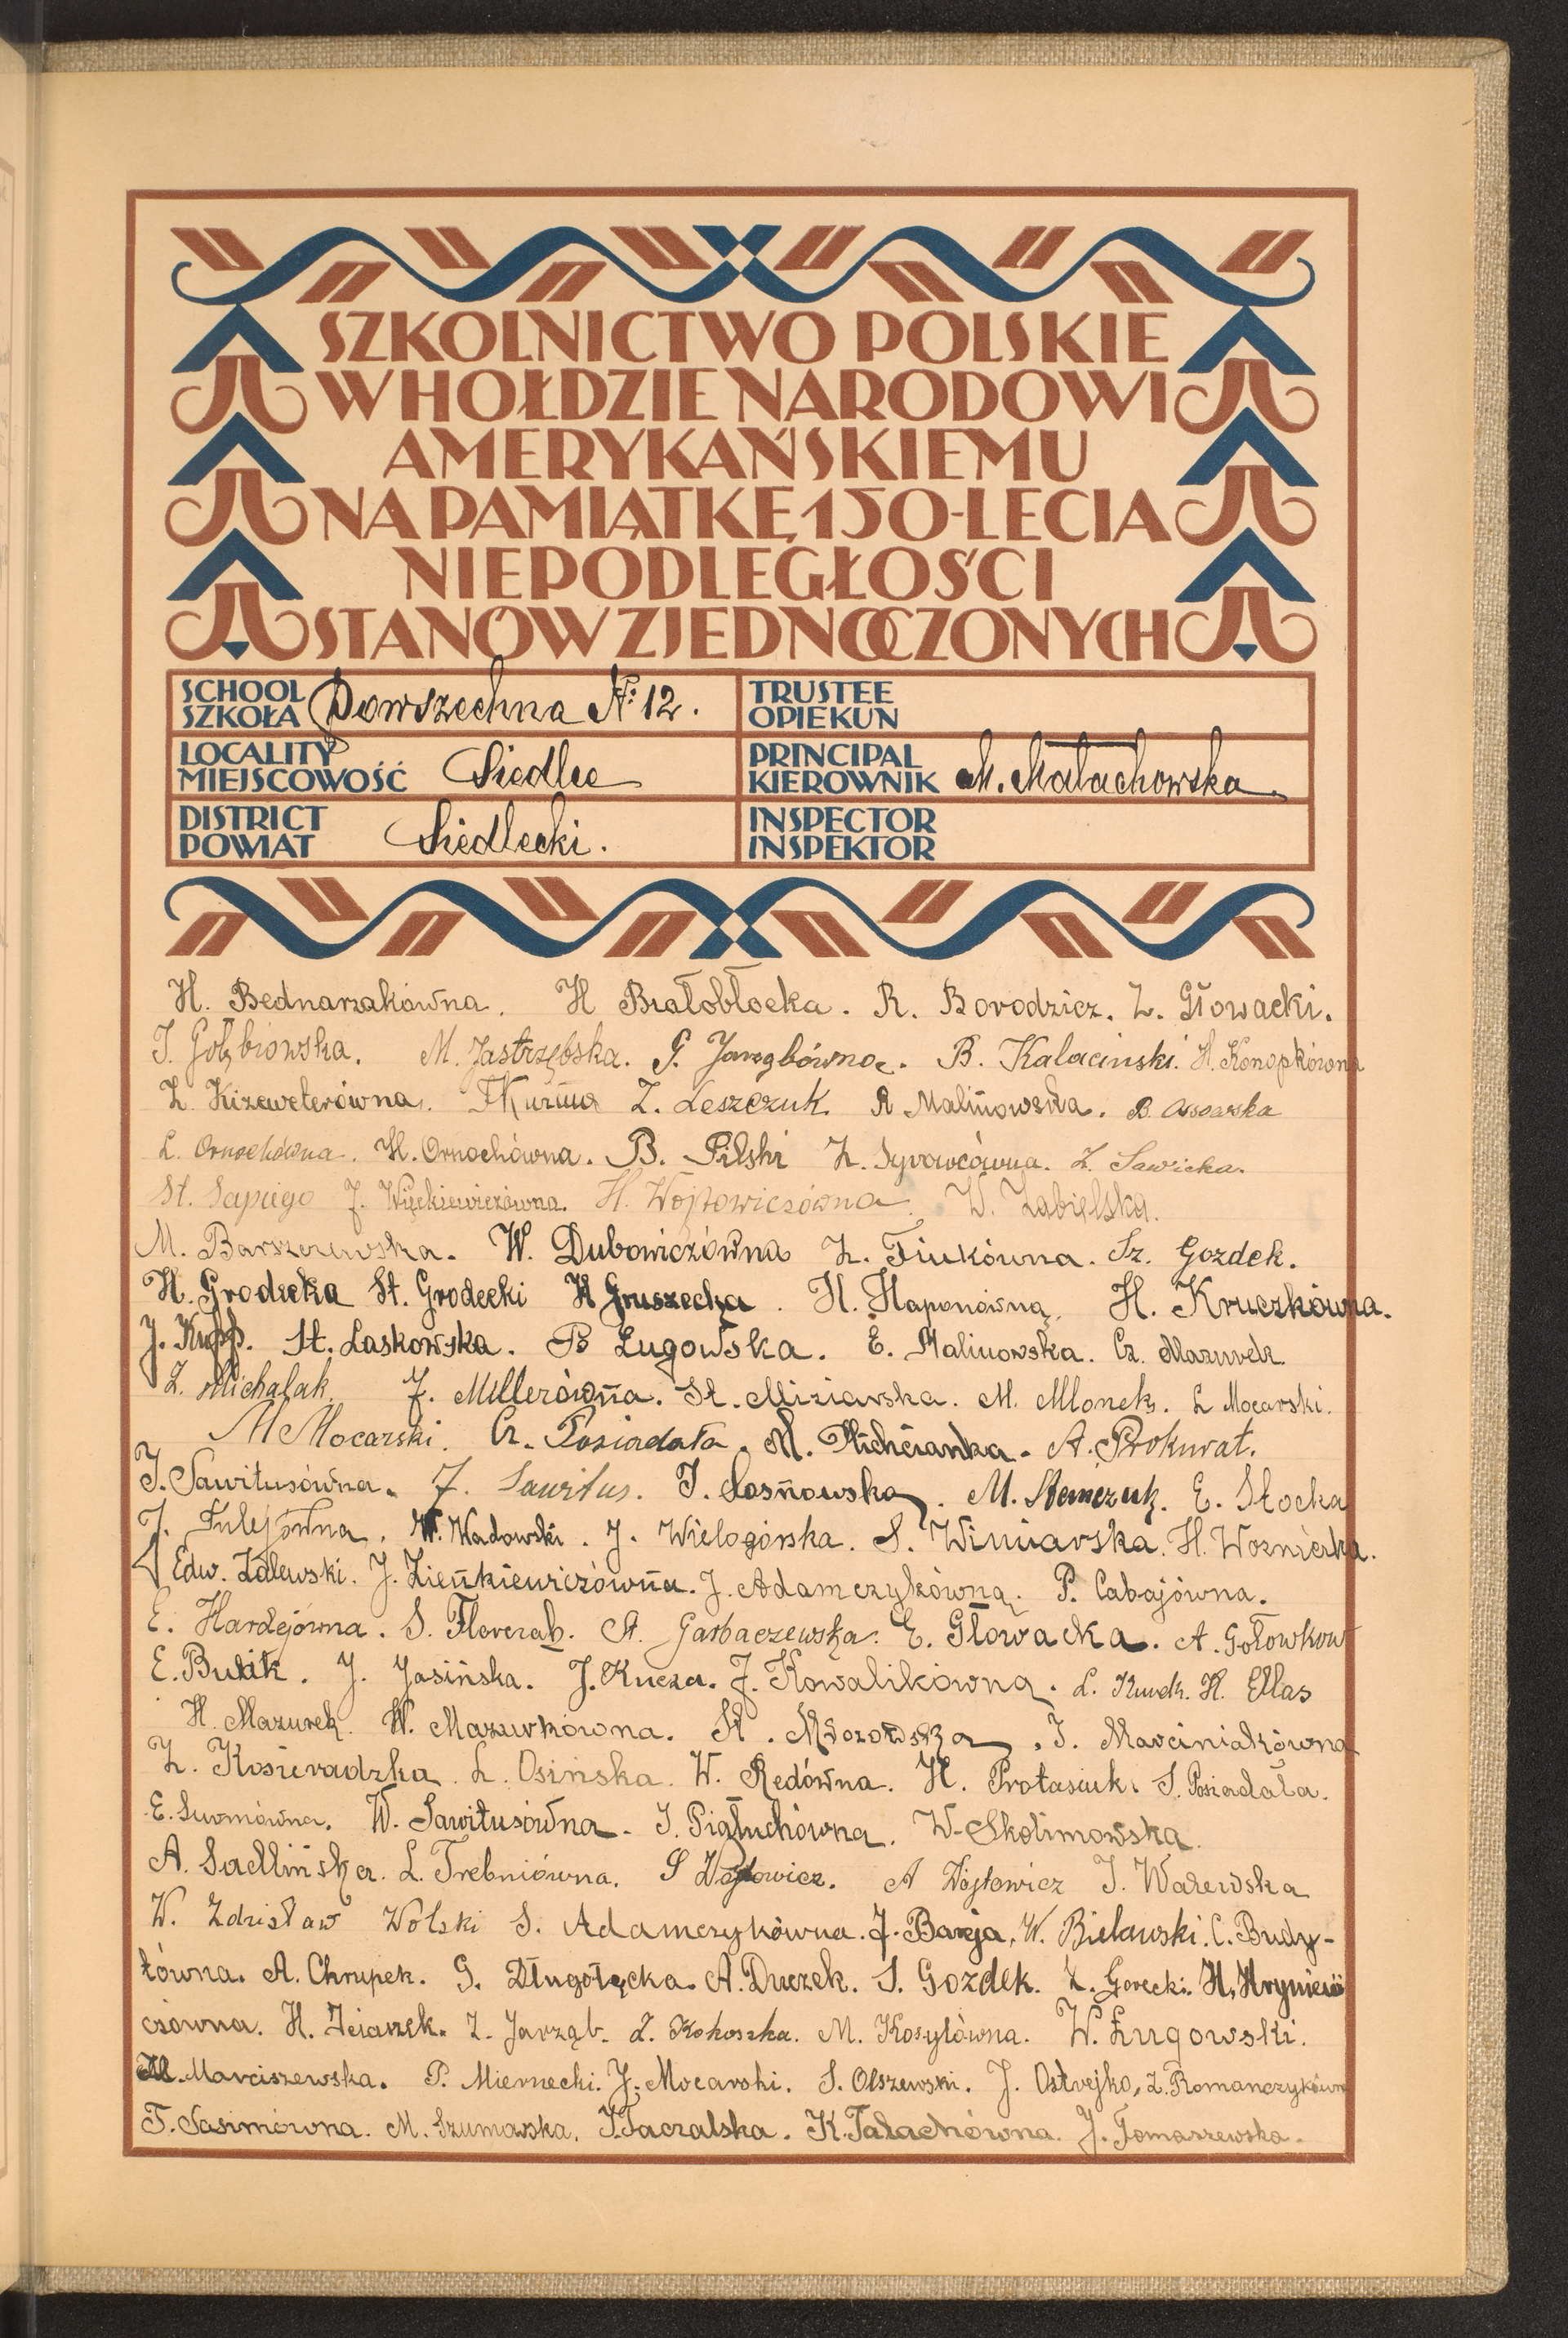 SZKOLNICTWO POLSKIE
W HOŁDZIE NARODOWI
AMERYKAŃSKIEMU
NA PAMIĄTKĘ 150-LECIA
NIEPODLEGŁOŚCI
STANÓW ZJEDNOCZONYCH
SCHOOL SZKOŁA Powszechna № 12.
TRUSTEE OPIEKUN
LOCALITY MIEJSCOWOŚĆ Siedlce
PRINCIPAL KIEROWNIK M. Małachowska
DISTRICT POWIAT Siedlecki.
INSPECTOR INSPEKTOR
H. Bednarzakówna. H Białobłocka. R. Borodzicz. Z. Głowacki.
J. Gołębiowska. M. Jastrzębska. G. Jarząbówna. B. Kalaciński. H. Konopkówna
Z. Kizeweterówna. Z. Leszczuk. R Malinowska. B. Ossowska
L. Ornochówna. H. Ornochówna. B. Pilski Z. Syrowcówna. Z. Sawicka.
St. Sapiego J. Więckiewiczówna. H. Wojtowiczówna. W. Zabielska.
M. Barszczewska. W. Dubowiczówna Z. Fiukówna. Sz. Gozdek.
H. Grodzcka St. Grodecki H Gruszecka. H. Haponówna. H. Kruczkówna.
J. Kupp. St. Laskowska. B Ługowska. E. Malinowska. Cz. Mazurek.
Z. Michalak. J. Millerówna. St. Miziarska. M. Mlonek. L Mocarski.
M Mocarski. Cz. Posiadała. M. A. Prokurat.
J. Sawitusówna. J. Sawitus. J. Sosnowska. M. Stemczuk. E. Słocka
J. Tulejówna. W. Wadowski. J. Wielogórska. S. Winiarska. H. Woźnicka.
Edw. Zalewski. J. Zienkiewiczówna. J. Adamczykówna. P. Cabajówna.
E. Hardejówna. S. Florczab. St. Garbaczewska. E. Głowacka. A. Gołowkow
E. Bulik. J. Jasińska. J. Kucza. J. Kowalikówna. L. Kurek. H. Mas
H. Mazurek. W. Mazurkówna. St. Mrozowska. J. Marciniakówna
Z. Kosieradzka. L. Osińska. W. Redówna. H. Protasiuk. S. Posiadała.
E. Surmówna. W. Sawitusówna. J. Piętuchówna. W. Skolimowska.
A. Sadlińska. L. Trebniówna. S Wojtowicz. A Wojtowicz J. Warewska
W. Zdzisław Wolski S. Adamczykówna. J. Barja. W. Bielawski. C. Budy-
łówna. A. Chrupek. G. Długołęcka. A. Duczek. S. Gozdek. Z. Gorecki. H. Hryniewi
czówna. H. Izianek. Z. Jarząb. Z. Kokoszka. M. Kosyłówna. W. Ługowski.
M. Marciszewska. P. Miernecki. J. Mocarski. S. Olszewski. J. Ostrejko, Z. Romanczykówn
T. Sasimówna. M. Szumowska. J. Taczalska. K. Tałachówna. J. Tomaszewska.